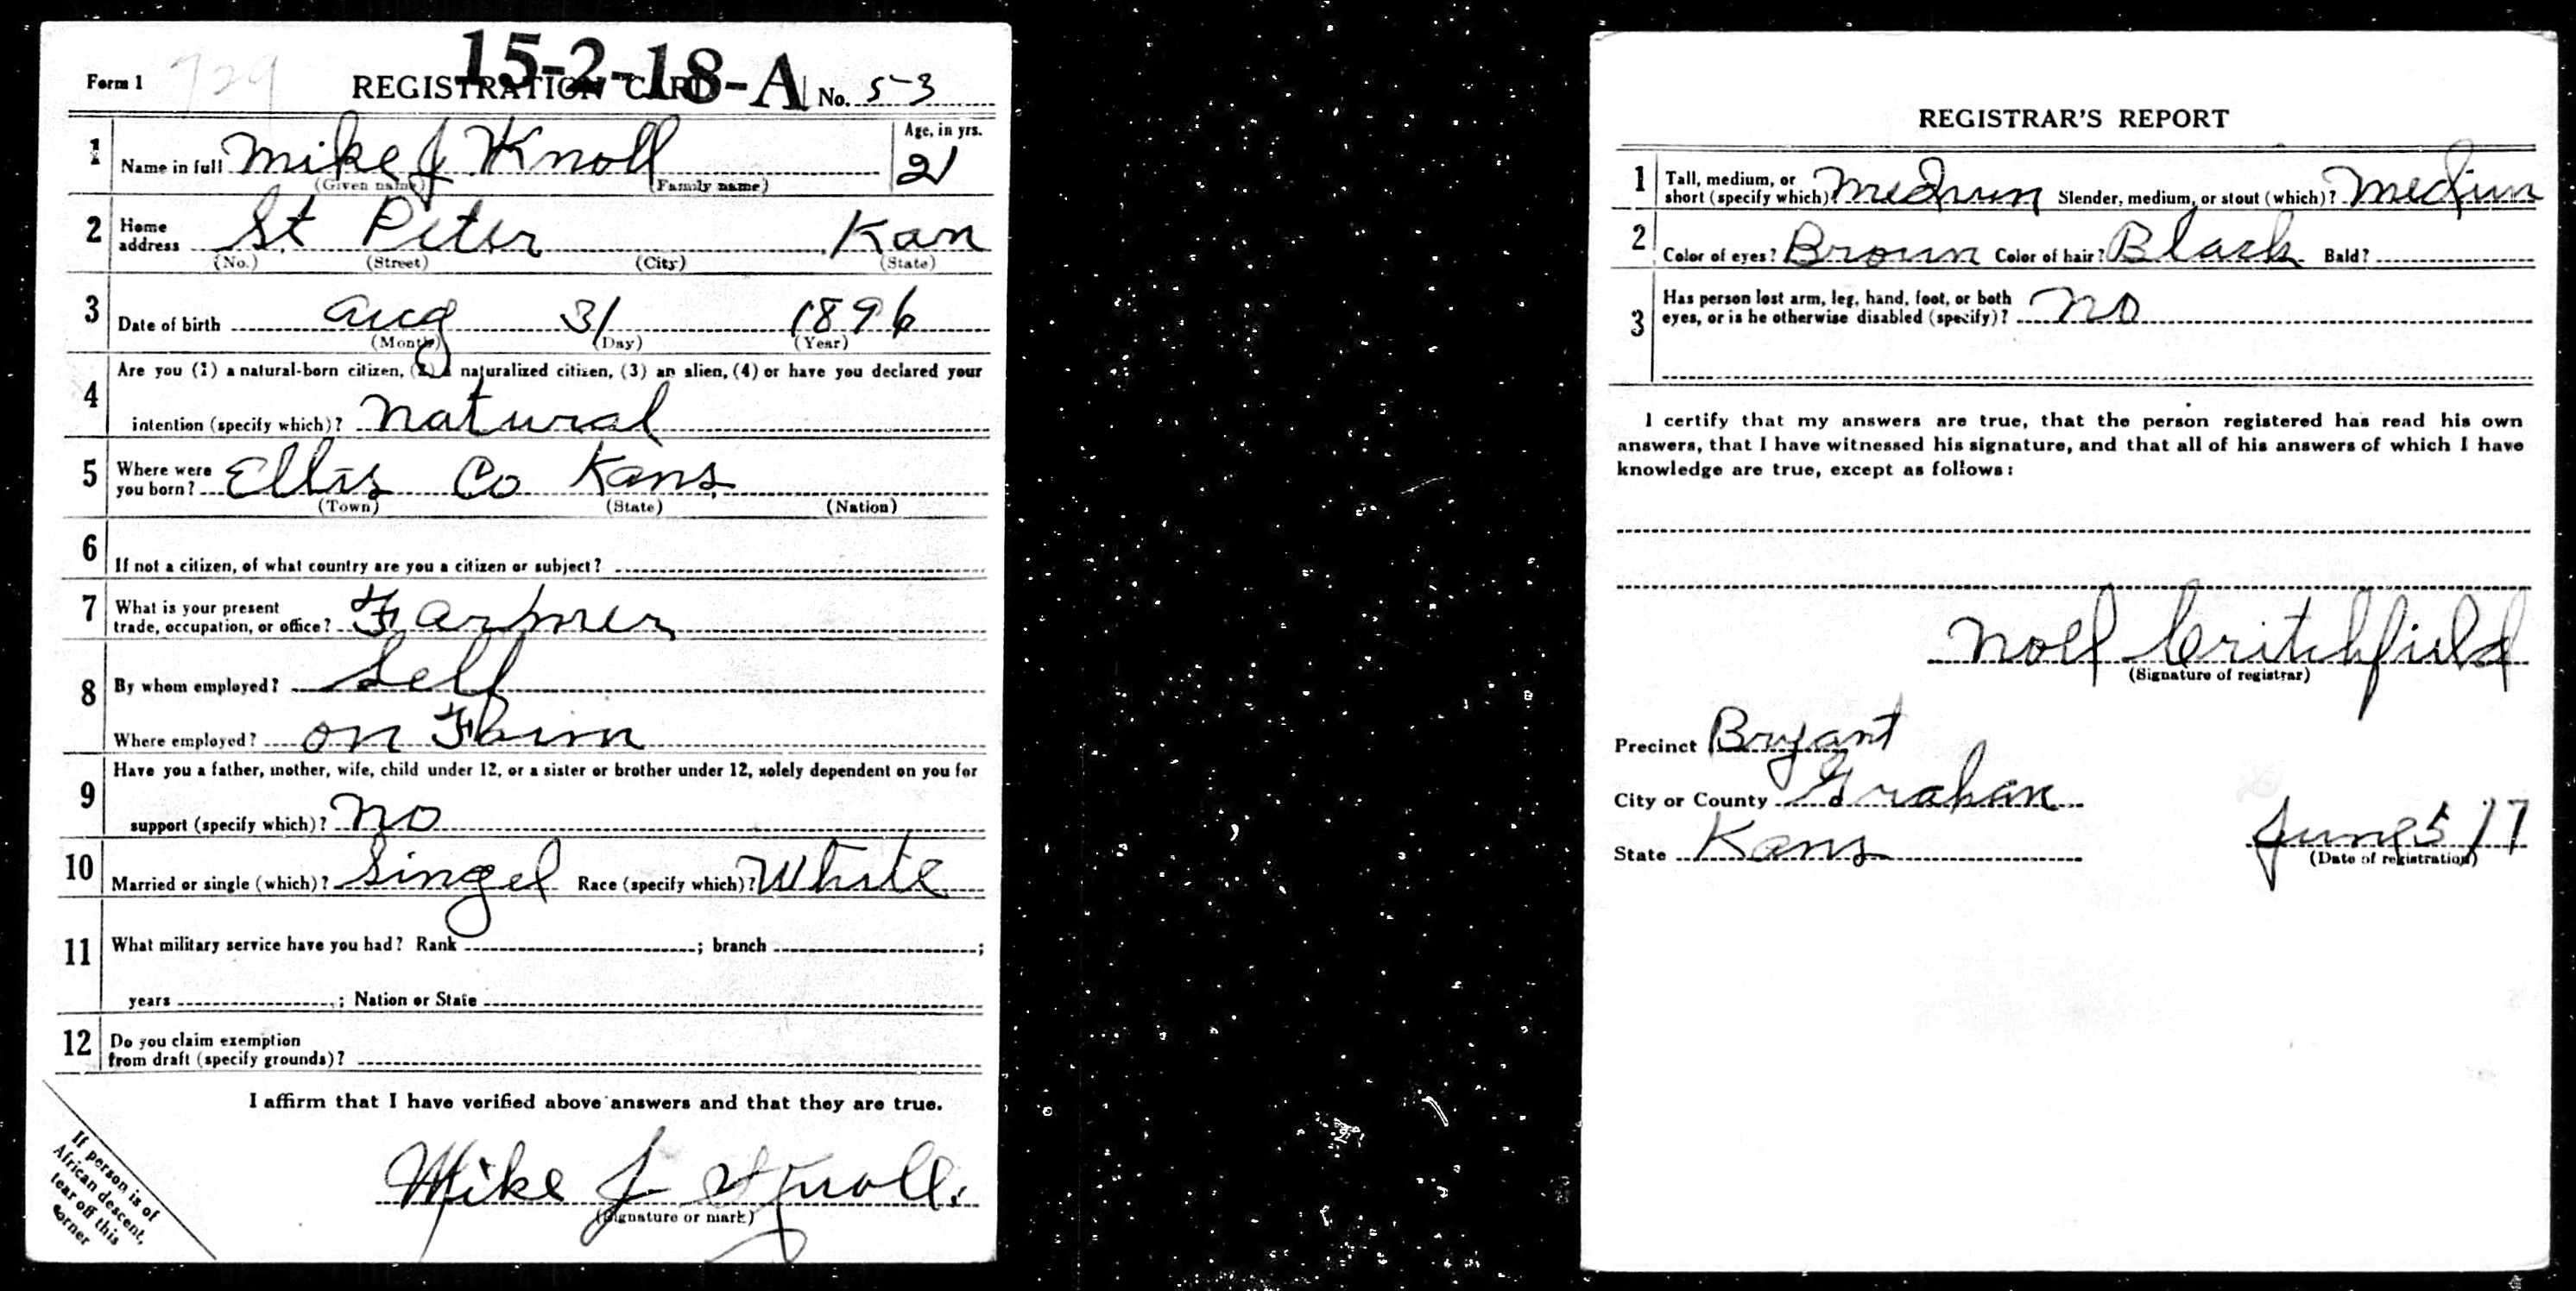 15-2-18-A
Form 1 729 REGISTRATION CARD No. 53
1 Name in full Mike J Knoll Age, in yrs. 21
(Given name) (Family name)
2 Home address St Peter Kan
(No.) (Street) (City) (State)
3 Date of birth Aug 31 1896
(Month) (Day) (Year)
4 Are you (1) a natural-born citizen, (2) a naturalized citizen, (3) an alien, (4) or have you declared your
intention (specify which)? Natural
5 Where were you born? Ellis Co Kans
(Town) (State) (Nation)
6 If not a citizen, of what country are you a citizen or subject?
7 What is your present trade, occupation, or office? Farmer
8 By whom employed? Self
Where employed? on Farm
9 Have you a father, mother, wife, child under 12, or a sister or brother under 12, solely dependent on you for
support (specify which)? No
10 Married or single (which)? Singel Race (specify which)? White
11 What military service have you had? Rank ; branch ;
years ; Nation or State
12 Do you claim exemption
from draft (specify grounds)?
I affirm that I have verified above answers and that they are true.
Mike J Knoll.
(Signature or mark)
If person is of
African descent,
tear off this
corner
REGISTRAR'S REPORT
1 Tall, medium, or short (specify which)? Medium Slender, medium, or stout (which)? Medium
2 Color of eyes? Brown Color of hair? Black Bald?
3 Has person lost arm, leg, hand, foot, or both
eyes, or is he otherwise disabled (specify)? No
I certify that my answers are true, that the person registered has read his own
answers, that I have witnessed his signature, and that all of his answers of which I have
knowledge are true, except as follows:
Noel Critchfield
(Signature of registrar)
Precinct Bryant
City or County Grahan
State Kans June 5 / 17
(Date of registration)